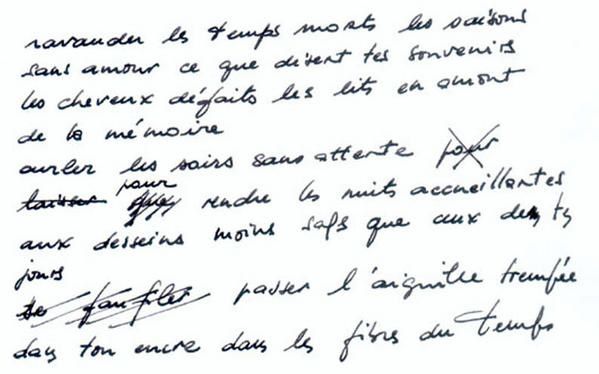 ravauder les temps morts les saisons
sans amour ce que disent tes souvenirs
les cheveux défaits les lits en amont
de la mémoire
ourler les soirs sans attente pour
laisser pour rendre les nuits accueillantes
aux desseins moins sages que ceux de tes
jours
se faufiler passer l'aiguille trempée
dans ton encre dans les fibres du temps